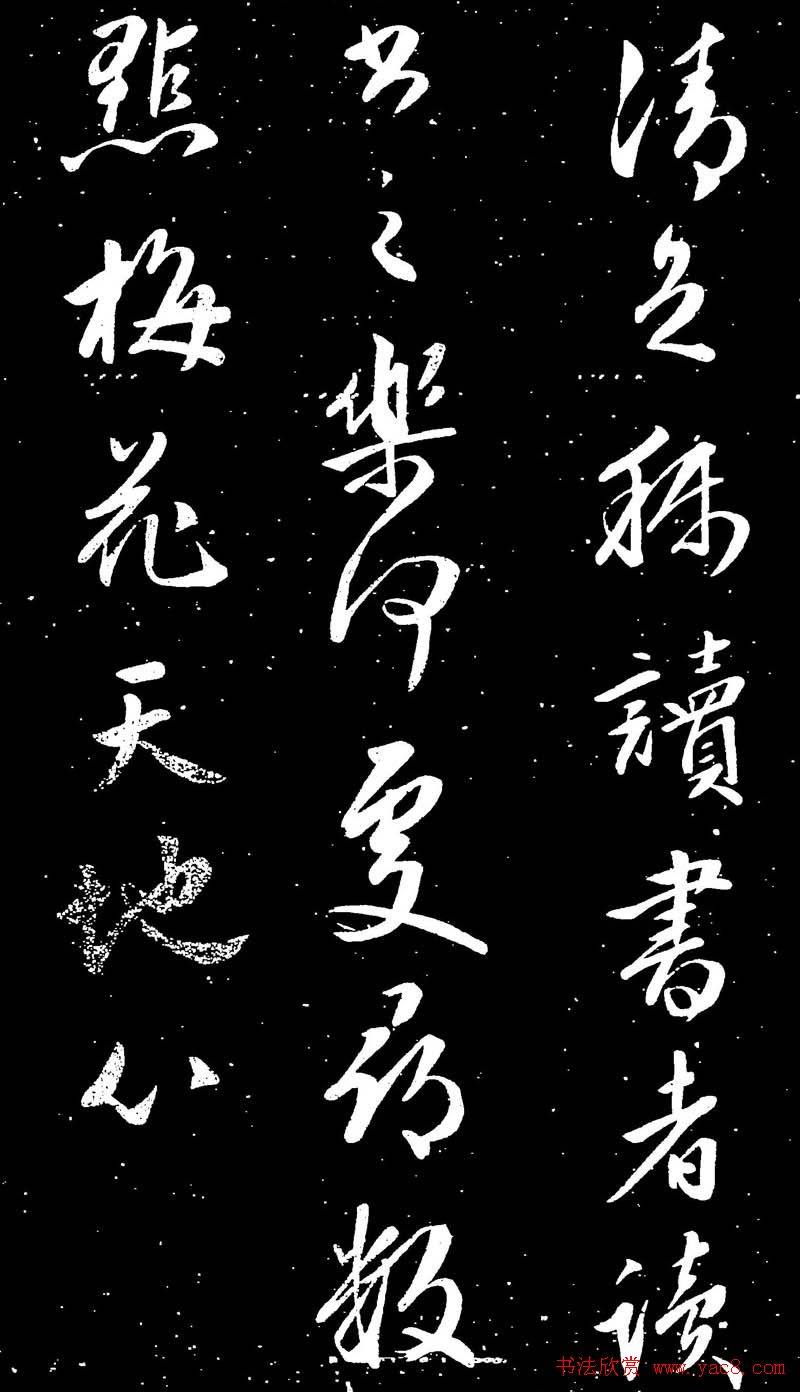 清足称讀書者讀
书之樂何處尋數
點梅花天地心
书法欣赏 www.yac8.com